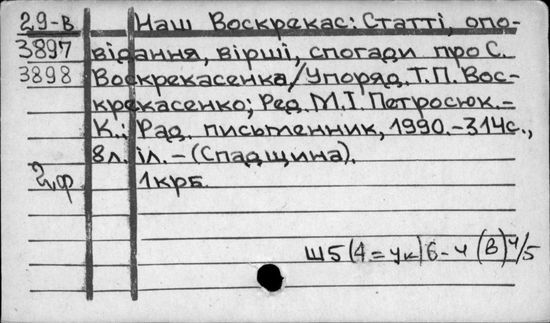 29-В Наш Воскрекас: Статті, опо-
3897 відання, вірші, спогади про С.
3898 Воскрекасенка/Упоряд. Т.П. Вос-
крекасенко; Ред. М.І. Петросюк.-
К.: Рад. письменник, 1990.-314с.,
8л. іл. - (Спадщина).
2,ф 1крб.
Ш5(4=Ук)6-4(В)4/5